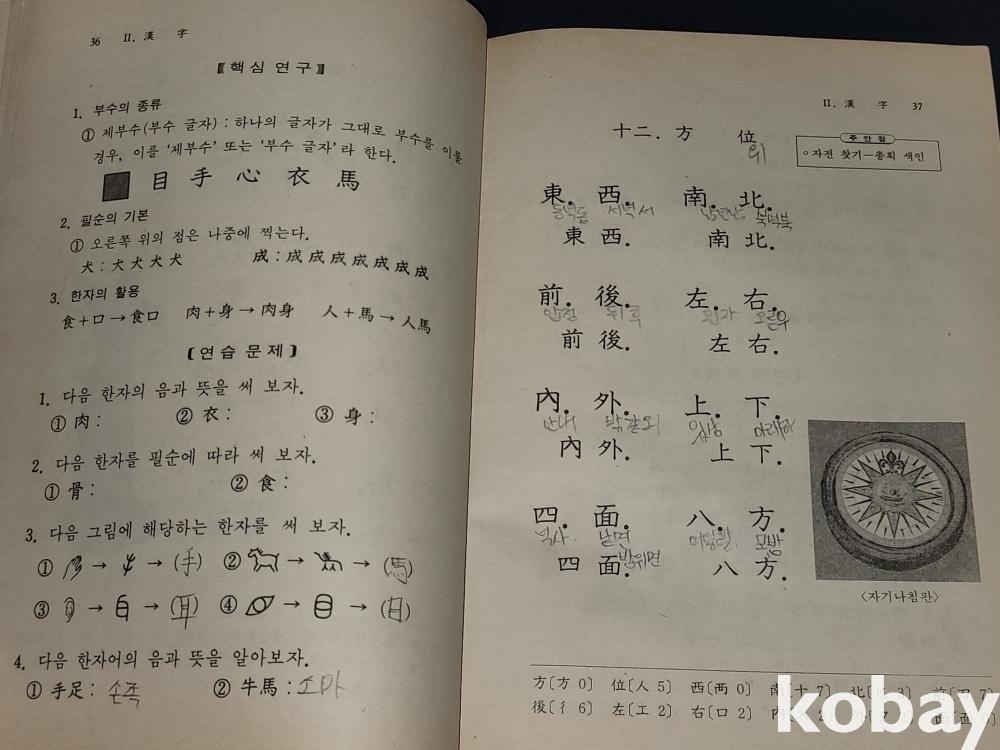 36 Ⅱ. 漢 字
【핵심 연구】
1. 부수의 종류
① 제부수(부수 글자) : 하나의 글자가 그대로 부수를 이룰
경우, 이를 '제부수' 또는 '부수 글자'라 한다.
目 手 心 衣 馬
2. 필순의 기본
① 오른쪽 위의 점은 나중에 찍는다.
犬 : 犬 犬 犬 犬 成 : 成 成 成 成 成 成 成
3. 한자의 활용
食+口→食口 肉+身→肉身 人+馬→人馬
(연습 문제)
1. 다음 한자의 음과 뜻을 써 보자.
① 肉 : ② 衣 : ③ 身 :
2. 다음 한자를 필순에 따라 써 보자.
① 骨 : ② 食 :
3. 다음 그림에 해당하는 한자를 써 보자.
① → → (手) ② → → (馬)
③ → → (耳) ④ → → (目)
4. 다음 한자어의 음과 뜻을 알아보자.
① 手足 : 손족 ② 牛馬 : 소마
Ⅱ. 漢 字 37
十二. 方 位
위
주안점
○자전 찾기—총획 색인
東. 西. 南. 北.
동녁동 서녁서 남녁남 북녁북
東 西. 南 北.
前. 後. 左. 右.
앞전 뒤후 왼좌 오른우
前 後. 左 右.
內. 外. 上. 下.
안내 밖같외 위상 아래하
內 外. 上 下.
四. 面. 八. 方.
넉사 낯면 여덟팔 모방
四 面. 八 方.
방위면
〈자기나침판〉
方〔方 0〕 位〔人 5〕 西〔襾 0〕 南〔十 7〕 北〔匕 3〕 前〔刀 7〕
後〔彳 6〕 左〔工 2〕 右〔口 2〕 內 2〕 外〔夕 2〕 面〔面 0〕
kobay